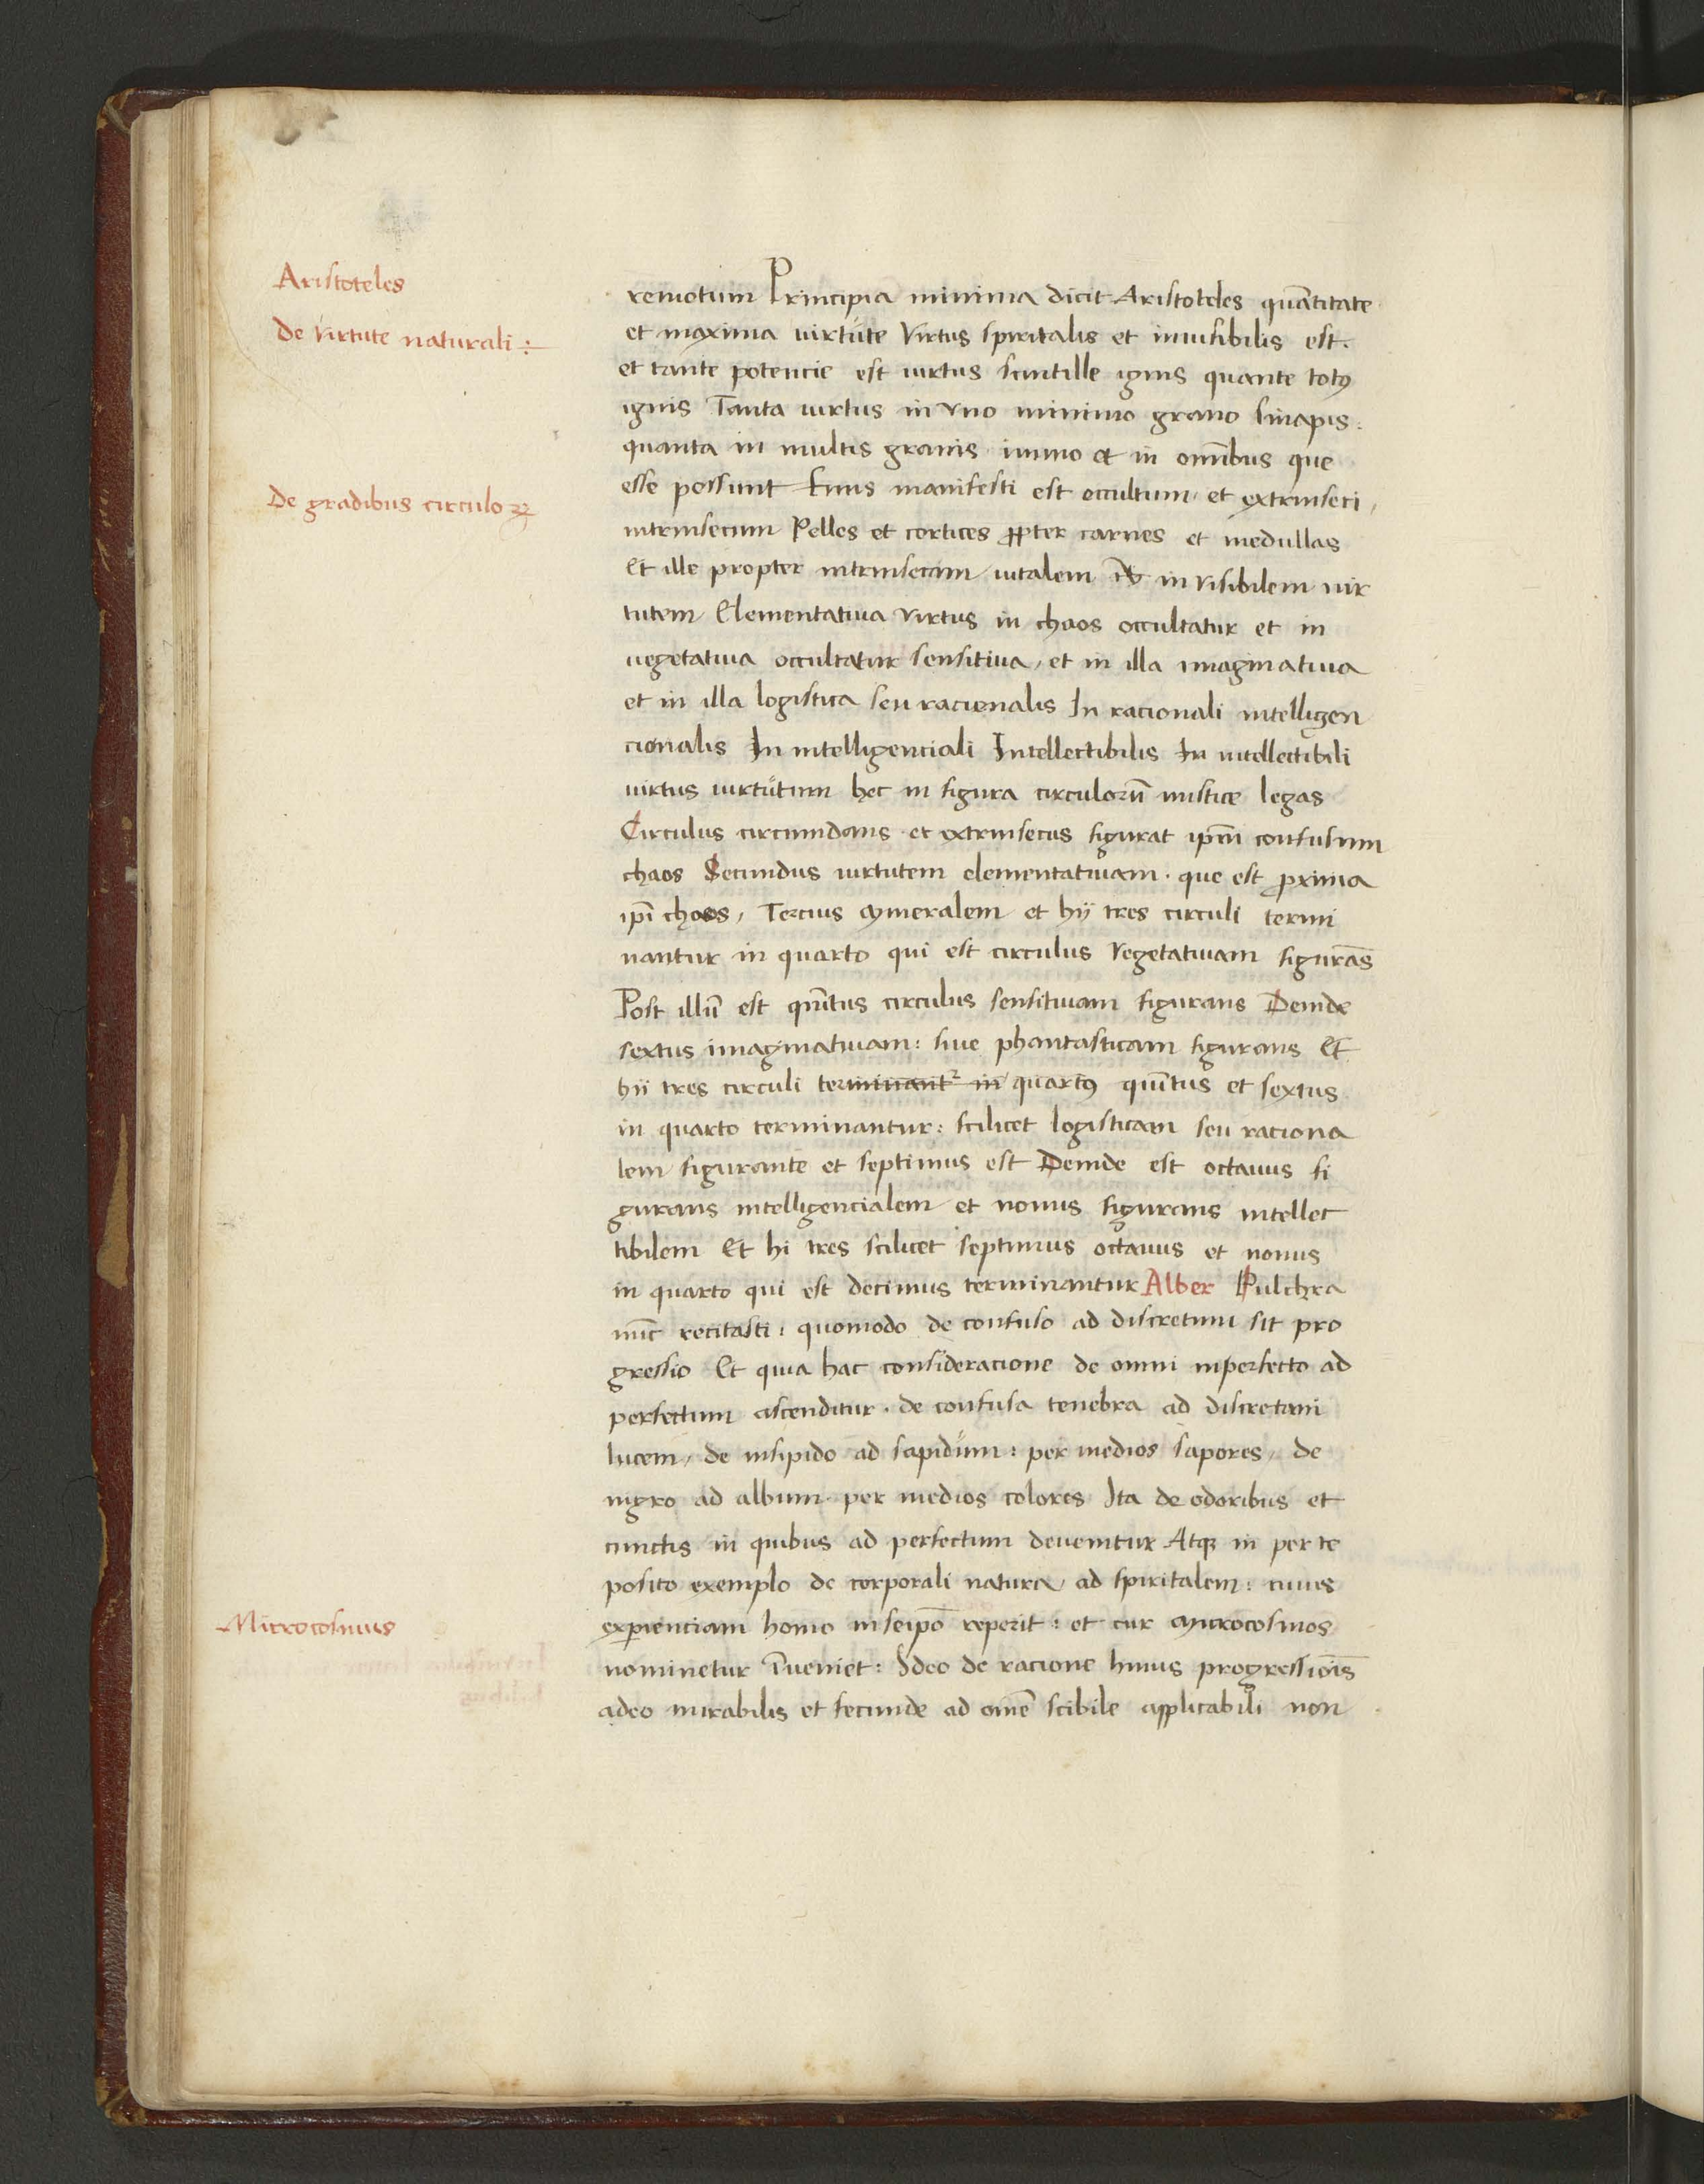 Aristoteles
De virtute naturali :
De gradibus circuloꝝ
Microcosmus
remotum Principia minima dicit Aristoteles quātitate
et maxima uirtute Virtus spiritalis et inuisibilis est.
et tante potencie est uirtus scintille ignis quante totꝰ
ignis Tanta uirtus in vno minimo grano sinapis :
quanta in multis granis immo et in omībus que
esse possunt Finis manifesti est occultum et extrinseci /
intrinsecum Pelles et cortices ꝓpter carnes et medullas
Et ille propter intrinsecam uitalem in visibilem uir
tutem Elementatiua virtus in chaos occultatur et in
uegetatiua occultatur sensitiua / et in illa imaginatiua
et in illa logistica seu racionalis In racionali intelligen
cionalis In intelligenciali Intellectibilis In intellectibili
uirtus uirtutum hec in figura circulorū mistice legas
Circulus circumdans et extrinsecus figurat ipm̄ confusum
chaos Secundus uirtutem elementatiuam . que est ꝓxima
ipi̅ chaos / Tercius mineralem et hij tres circuli termi
nantur in quarto qui est circulus vegetatiuam figurās
Post illū est quītus circulus sensitiuam figurans Deinde
sextus imaginatiuam : siue phantasticam figurans Et
hij tres circuli terminant² in quartꝰ quītus et sextus
in quarto terminantur : scilicet logisticam seu raciona
lem figurante et septimus est Deinde est octauus fi
gurans intelligencialem et nonus figurans intellec
tibilem Et hi tres scilicet septimus octauus et nonus
in quarto qui est decimus terminantur Alber Pulchra
nūc recitasti : quomodo de confuso ad discretum sit pro
gressio Et quia hac consideracione de omni inperfecto ad
perfectum ascenditur . de confusa tenebra ad discretam
lucem / de insipido ad sapidum : per medios sapores / de
nigro ad album . per medios colores Ita de odoribus et
cunctis in quibus ad perfectum deuenitur Atqꝫ in per te
posito exemplo de corporali natura / ad spiritalem : cuius
exꝑienciam homo in seipo̅ reperit : et cur microcosmos
nominetur īueniet : Ideo de racione huius progressiōis
adeo mirabilis et fecunde ad omē scibile applicabili non